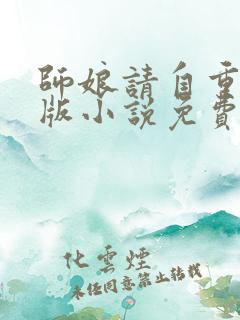 師娘請自重
版小說免費
化雲煙
未經同意禁止轉載